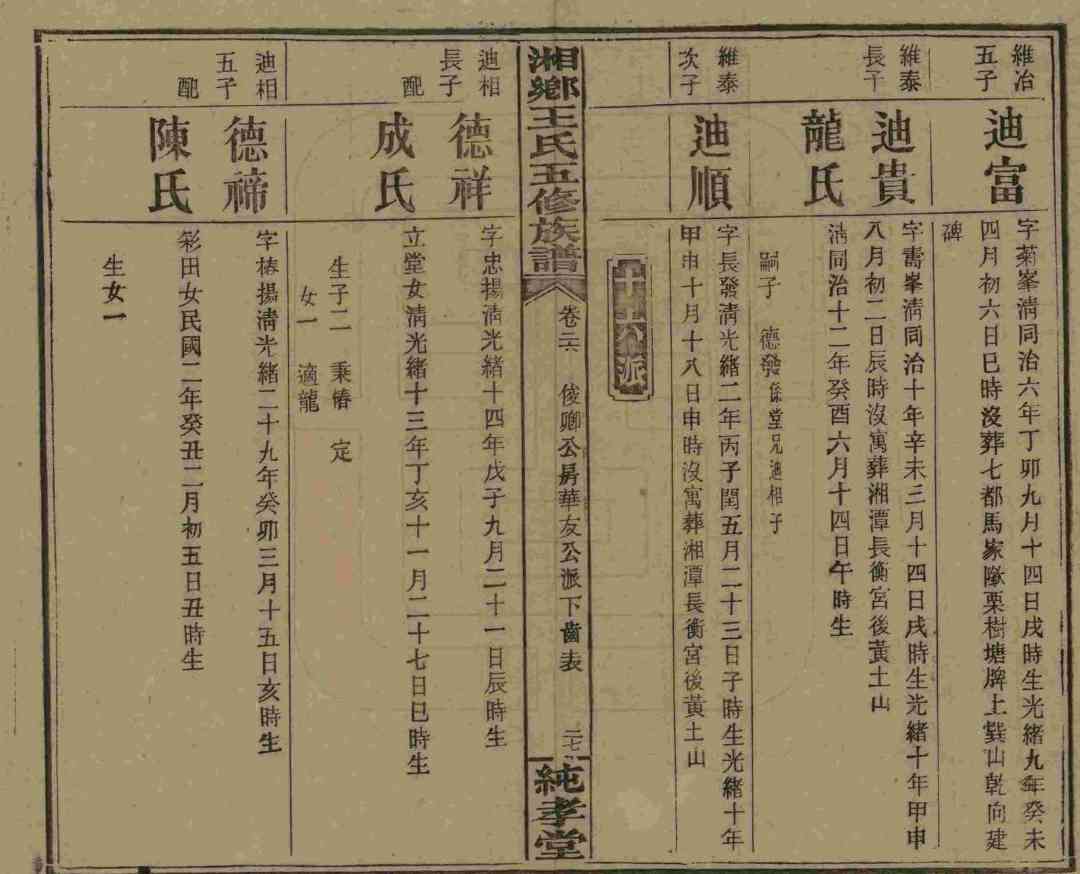 維冶
五子
迪富
字菊峯淸同治六年丁卯九月十四日戌時生光緒九年癸未
四月初六日巳時沒葬七都馬家壠栗樹塘牌上巽山乾向建
碑
維泰
長子
迪貴
字壽峯淸同治十年辛未三月十四日戌時生光緒十年甲申
八月初二日辰時沒寓葬湘潭長衡宮後黃土山
龍氏
淸同治十二年癸酉六月十四日午時生
嗣子 德發係堂兄迪相子
維泰
次子
迪順
字長發淸光緒二年丙子閏五月二十三日子時生光緒十年
甲申十月十八日申時沒寓葬湘潭長衡宮後黃土山
十六派
湘鄉王氏五修族譜
卷二六 俊卿公房華友公派下齒表 二七
純孝堂
迪相
長子
德祥
字忠揚淸光緒十四年戊子九月二十一日辰時生
配
成氏
立堂女淸光緒十三年丁亥十一月二十七日巳時生
生子二 秉椿 定
女一 適龍
迪相
五子
德禘
字椿揚淸光緒二十九年癸卯三月十五日亥時生
配
陳氏
彩田女民國二年癸丑二月初五日丑時生
生女一